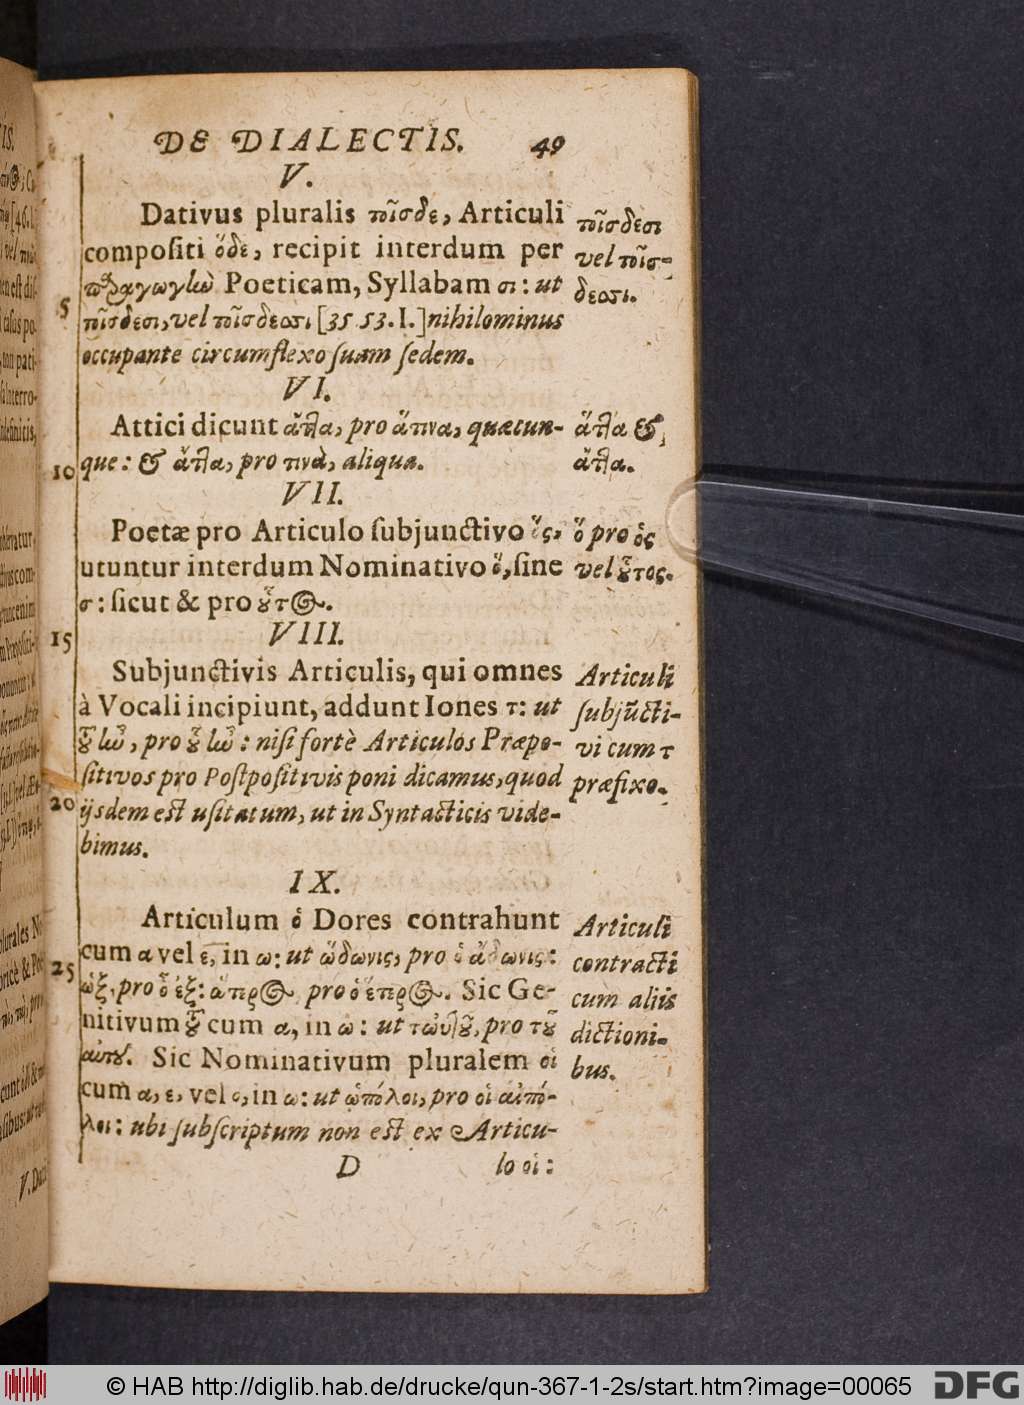 DE DIALECTIS. 49
V.
Dativus pluralis τοῖσδε, Articuli
compositi ὅδε, recipit interdum per
παραγωγὴν Poeticam, Syllabam σι: ut
τοῖσδεσι, vel τοῖσδεσσι [35. 53. I.] nihilominus
occupante circumflexo suam sedem.
VI.
Attici dicunt ἅττα, pro ἅτινα, quæcun-
que: & ἄττα, pro τινὰ, aliqua.
VII.
Poetæ pro Articulo subjunctivo ὅς,
utuntur interdum Nominativo ὅ, sine
σ: sicut & pro οὗτος.
VIII.
Subjunctivis Articulis, qui omnes
à Vocali incipiunt, addunt Iones τ: ut
pro : nisi fortè Articulos Præpo-
sitivos pro Postpositivis poni dicamus, quod
ijsdem est usitatum, ut in Syntacticis vide-
bimus.
IX.
Articulum ὁ Dores contrahunt
cum α vel ε, in ω: ut ὥδωνις, pro ὁ ἄδωνις:
ὡξ, pro ὁ ἐξ: pro ὁ ἕτερος. Sic Ge-
nitivum οῦ cum α, in ω: ut τωὐτοῦ, pro τοῦ
αὐτοῦ. Sic Nominativum pluralem οἱ
cum α, ε, vel ο, in ω: ut ὡπόλοι, pro οἱ αἰπό-
λοι: ubi subscriptum non est ex Articu-
D lo οἱ:
τοῖσδεσι
vel τοῖσ-
δεσσι.
ἅττα &
ἄττα.
ὅ pro ὁς
vel οὗτος.
Articuli
subjūcti-
vi cum τ
præfixo.
Articuli
contracti
cum aliis
dictioni-
bus.
5
10
15
20
25
© HAB http://diglib.hab.de/drucke/qun-367-1-2s/start.htm?image=00065
DFG